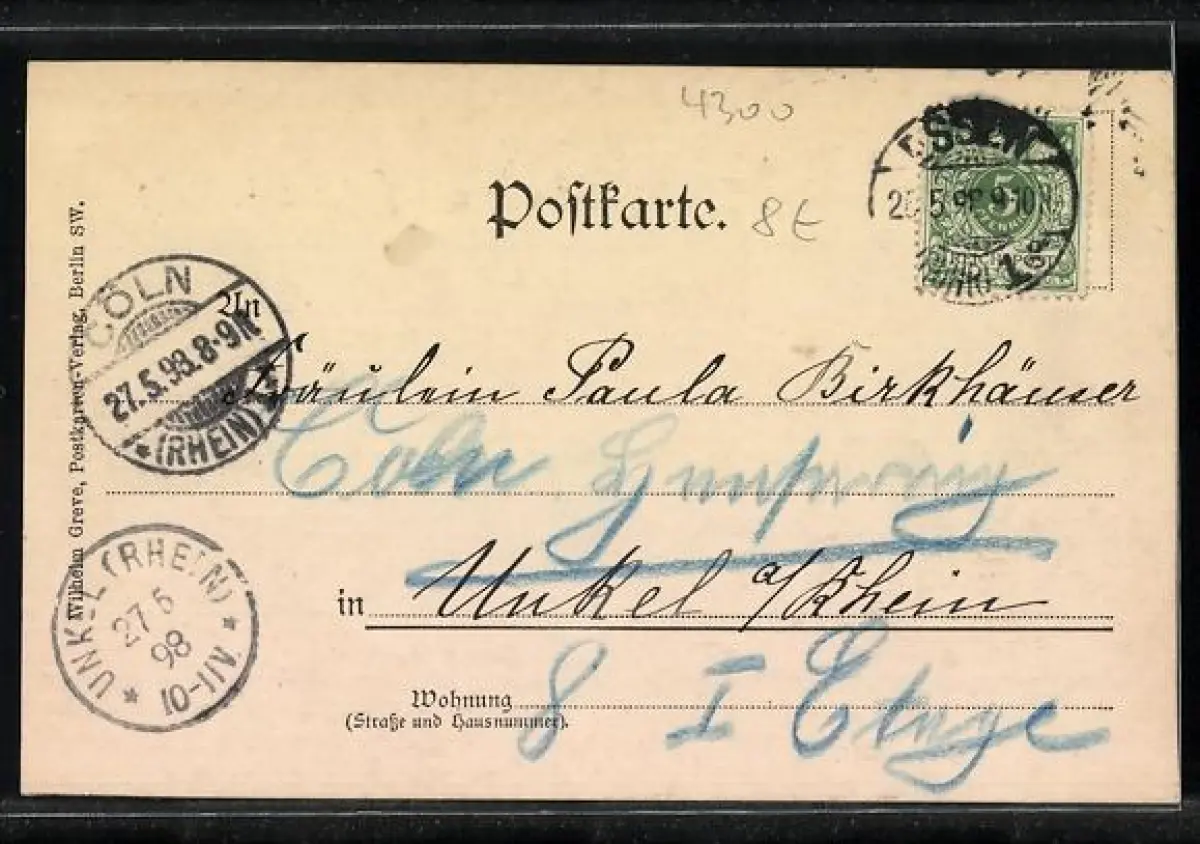 4300
Postkarte.
8 €
SSEN
5 98 9-10
1
5
CÖLN
27.5.98.8-9N
*(RHEIN)
An
Fräulein Paula Birkhäuser
Cöln
in Unkel a/Rhein
8 I Etage
Wohnung
(Straße und Hausnummer).
UNKEL (RHEIN)
27 5
98
10-11V
Wilhelm Greve, Postkarten-Verlag, Berlin SW.